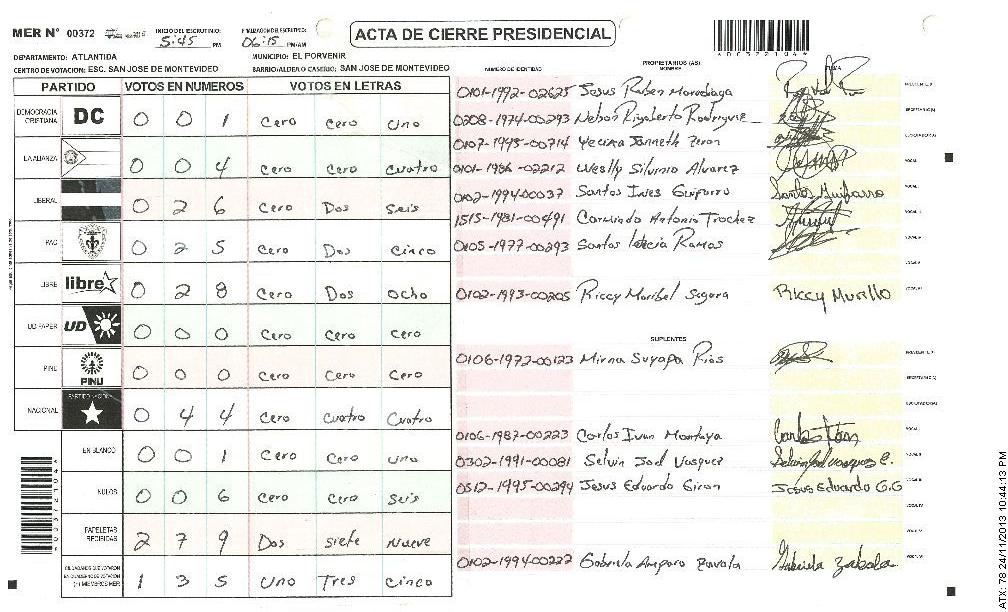 MER N° 00372 INICIO DEL ESCRUTINIO: 5:45 PM FINALIZACION DEL ESCRUTINIO: 06:15 PM/AM
ACTA DE CIERRE PRESIDENCIAL
DEPARTAMENTO: ATLANTIDA MUNICIPIO: EL PORVENIR
CENTRO DE VOTACION: ESC. SAN JOSE DE MONTEVIDEO BARRIO/ALDEA O CASERIO: SAN JOSE DE MONTEVIDEO
PARTIDO VOTOS EN NUMEROS VOTOS EN LETRAS
DEMOCRACIA CRISTIANA DC 0 0 1 Cero Cero Uno
LA ALIANZA 0 0 4 Cero Cero Cuatro
LIBERAL 0 2 6 Cero Dos Seis
PAC 0 2 5 Cero Dos Cinco
LIBRE libre 0 2 8 Cero Dos Ocho
UD FAPER UD 0 0 0 Cero Cero Cero
PINU PINU 0 0 0 Cero Cero Cero
NACIONAL 0 4 4 Cero Cuatro Cuatro
EN BLANCO 0 0 1 Cero Cero Uno
NULOS 0 0 6 Cero Cero Seis
PAPELETAS RECIBIDAS 2 7 9 Dos Siete Nueve
CIUDADANOS QUE VOTARON EN CUADERNO DE VOTACION (+) MIEMBROS MER 1 3 5 Uno Tres Cinco
NUMERO DE IDENTIDAD PROPIETARIOS (AS) NOMBRE FIRMA
0101-1992-02625 Jesus Ruben Maradiaga
0208-1974-00293 Nelson Rigoberto Rodriguez
0107-1995-00714 Yecika Janneth Peron
0101-1986-02212 Weslly Silverio Alvarez
0102-1994-00037 Santos Ines Guifarro Santos Guifarro
1515-1981-00491 Carmindo Antonio Trochez
0105-1977-00293 Santos Leticia Ramos
0102-1993-00205 Riccy Maribel Sagora Riccy Murillo
SUPLENTES
0106-1972-00123 Mirna Suyapa Rios
0106-1987-00223 Carlos Ivan Montoya
0302-1991-00081 Selvin Joel Vasquez Selvin Joel Vasquez C.
0512-1995-00294 Jesus Eduardo Giron Jesus Eduardo G.G
0102-1994-00222 Gabriela Amparo Zavala Gabriela Zabala
ATX: 78 24/11/2013 10:44:13 PM